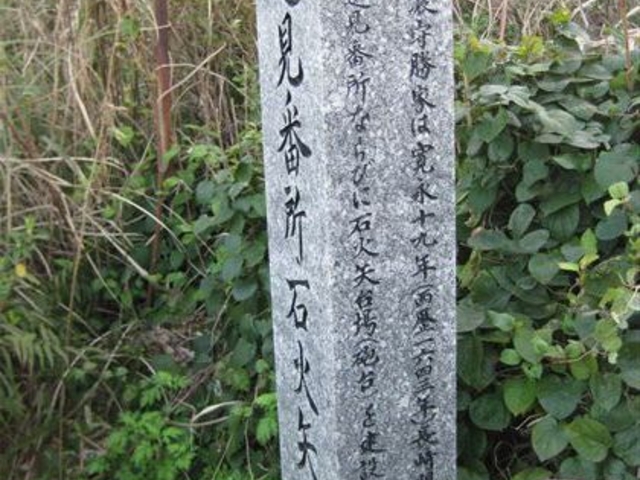 見番所 石火矢
守勝家は寛永十九年(西暦一六四三年)長崎
見番所ならびに石火矢台場(砲台)を建設